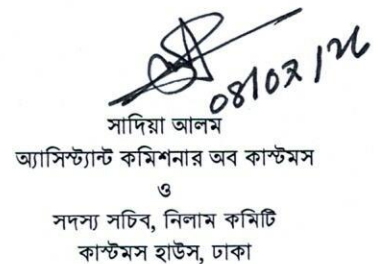 08/02/26
সাদিয়া আলম
অ্যাসিস্ট্যান্ট কমিশনার অব কাস্টমস
ও
সদস্য সচিব, নিলাম কমিটি
কাস্টমস হাউস, ঢাকা